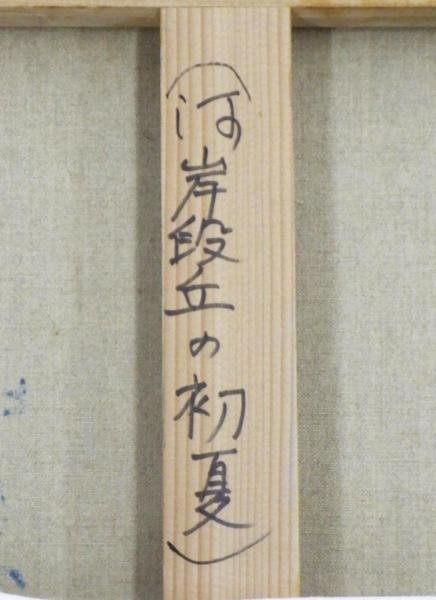 （河岸段丘の初夏）